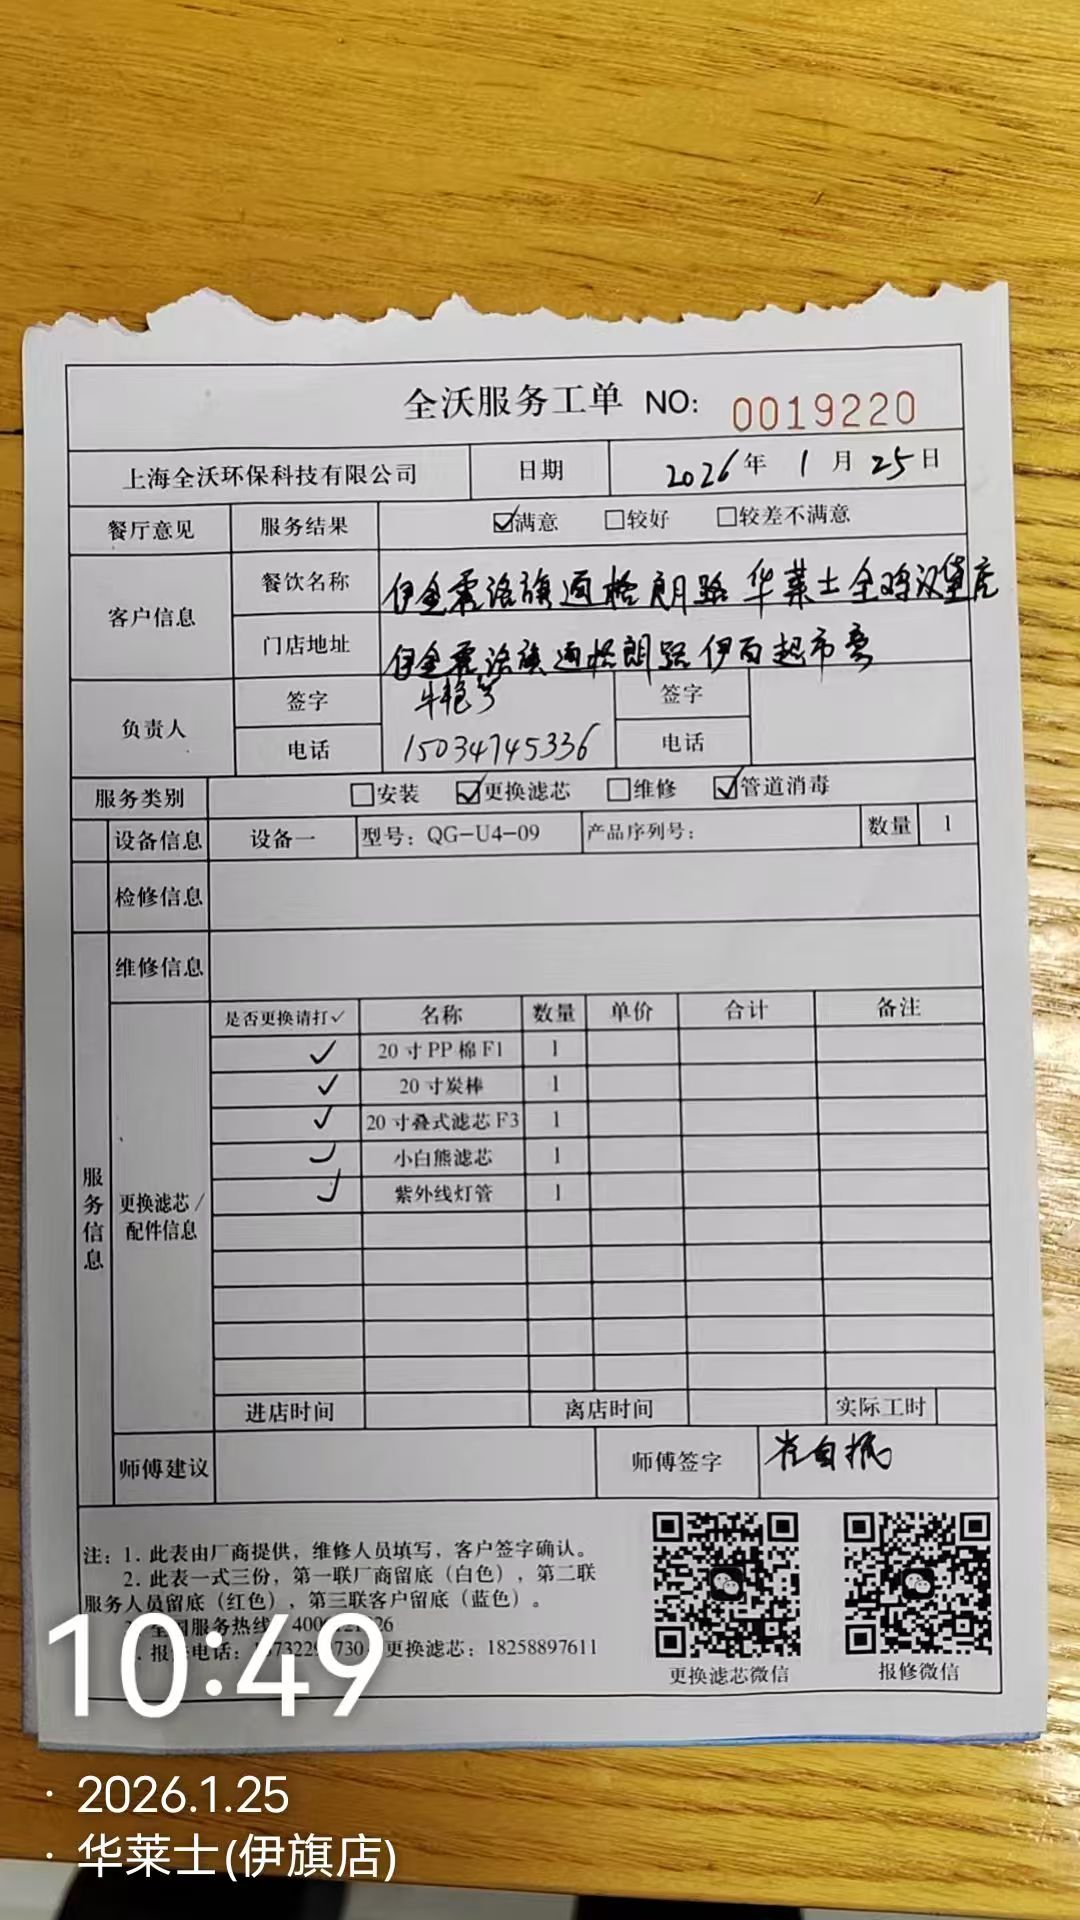 全沃服务工单 NO: 0019220
上海全沃环保科技有限公司 日期 2026年 1月 25日
餐厅意见 服务结果 ☑满意 □较好 □较差不满意
客户信息 餐饮名称 伊金霍洛旗通格朗路华莱士全鸡汉堡店
门店地址 伊金霍洛旗通格朗路伊百超市旁
负责人 签字 牛艳 签字
电话 15034745336 电话
服务类别 □安装 ☑更换滤芯 □维修 ☑管道消毒
设备信息 设备一 型号: QG-U4-09 产品序列号: 数量 1
检修信息
维修信息
服务信息
更换滤芯/配件信息
是否更换请打✓ 名称 数量 单价 合计 备注
✓ 20寸PP棉F1 1
✓ 20寸炭棒 1
✓ 20寸叠式滤芯F3 1
✓ 小白熊滤芯 1
✓ 紫外线灯管 1
进店时间 离店时间 实际工时
师傅建议 师傅签字 崔自振
注: 1. 此表由厂商提供, 维修人员填写, 客户签字确认。
2. 此表一式三份, 第一联厂商留底(白色), 第二联
服务人员留底(红色), 第三联客户留底(蓝色)。
全国服务热线
电话: 更换滤芯: 18258897611
更换滤芯微信 报修微信
10:49
· 2026.1.25
· 华莱士(伊旗店)